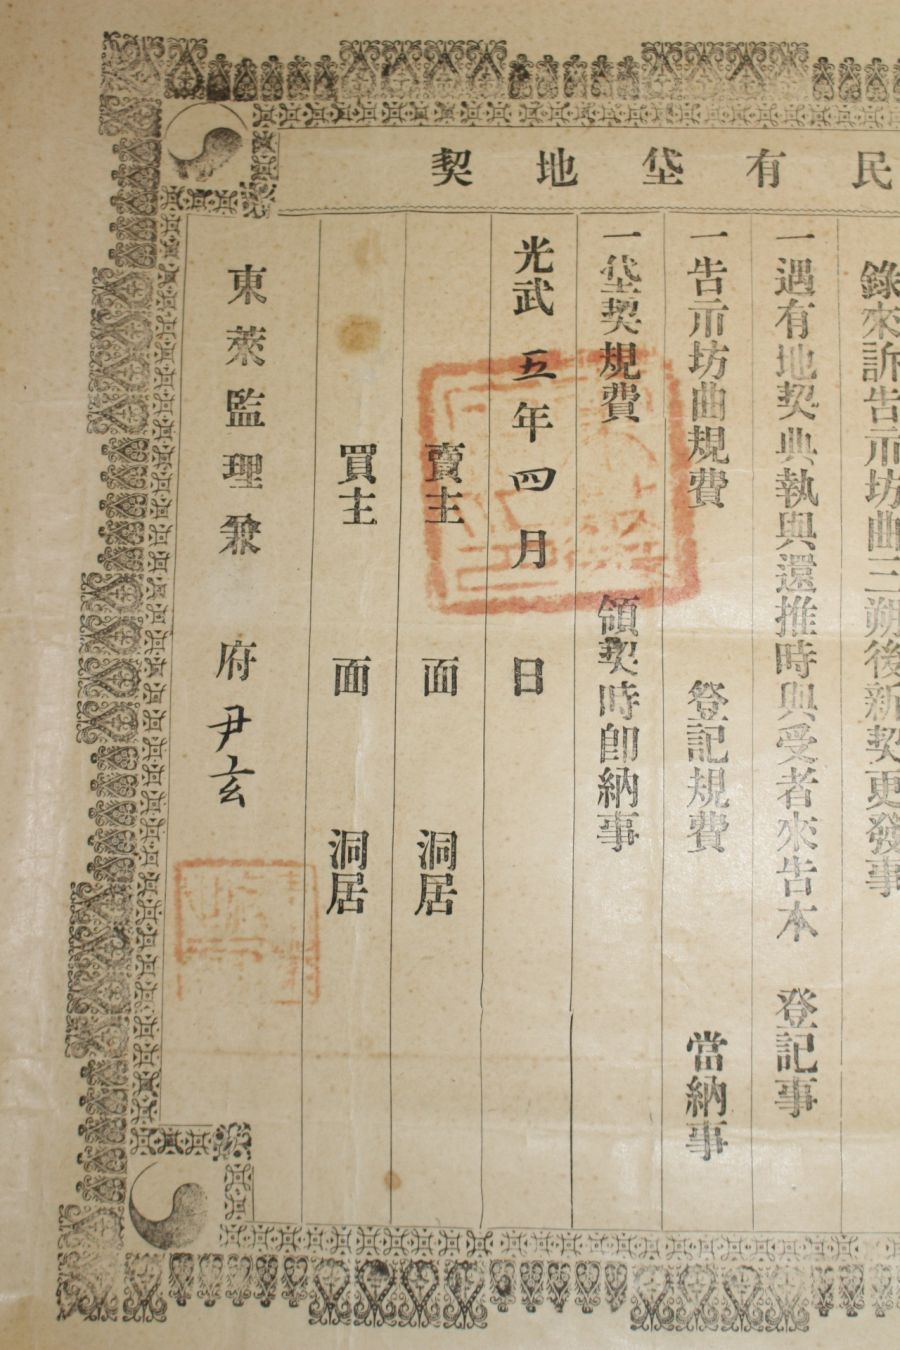 民有垈地契
錄來訴告示坊曲三朔後新契更發事
一遇有地契典執與還推時與受者來告本 登記事
一告示坊曲規費 登記規費 當納事
一垈契規費 領契時卽納事
光武 五年 四月 日
賣主 面 洞居
買主 面 洞居
東萊監理兼 府尹玄